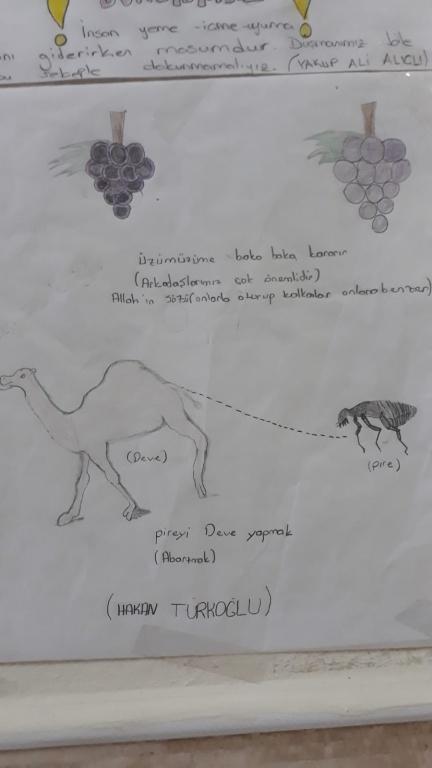 İnsan yeme-içme-uyuma
giderirken masumdur. Düşmanımız bile
sebeple dokunmamalıyız. (YAKUP ALİ ALICLI)
üzümüzüme baka baka kararır
(Arkadaşlarımız çok önemlidir)
Allah'ın sözü (onlarla oturup kalkalar onlara benzer)
(Deve)
(pire)
pireyi Deve yapmak
(Abartmak)
(HAKAN TÜRKOĞLU)